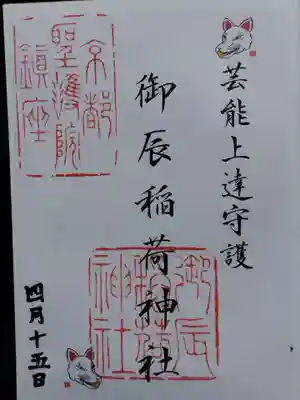 芸能上達守護
御辰稲荷神社
京都
聖護院
鎮座
御辰
稲荷
神社
四月十五日